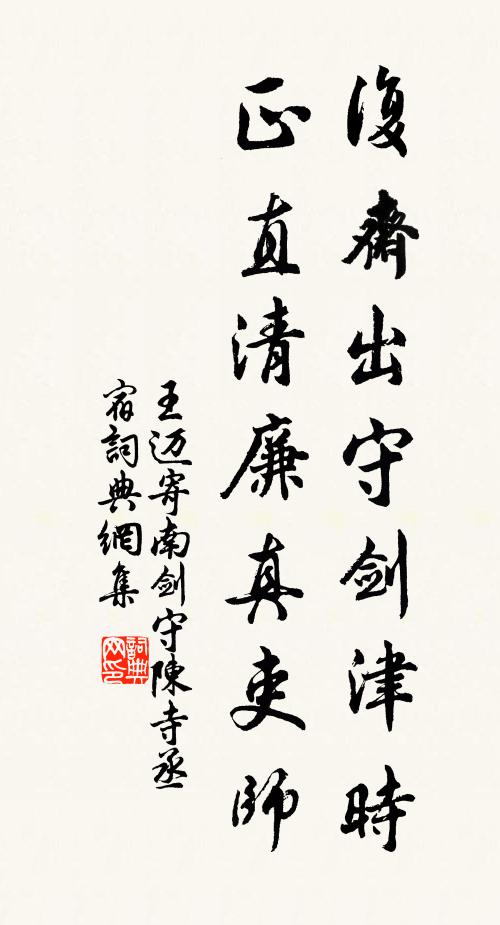 復齋出守剑津時
正直清廉真吏師
王迈寄南剑守陳寺丞
宿詞典網集
詞典网印